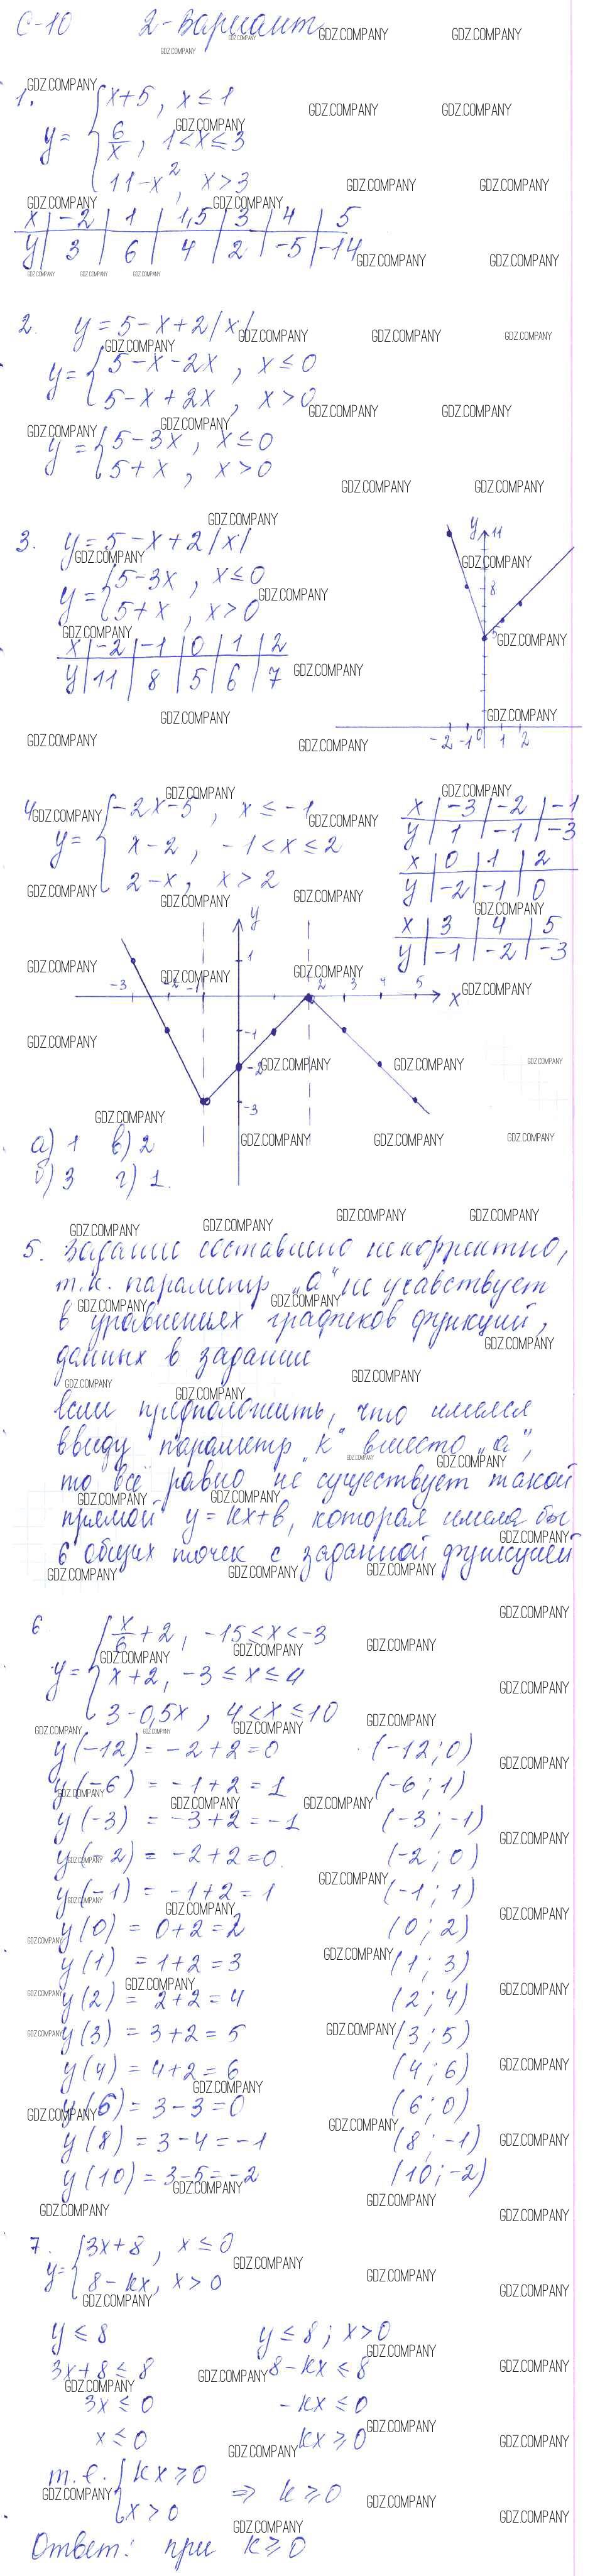 С-10 2-Вариант
1. y = { x+5, x ≤ 1
6/x, 1 < x ≤ 3
11-x², x > 3
x | -2 | 1 | 1,5 | 3 | 4 | 5
y | 3 | 6 | 4 | 2 | -5 | -14
2. y = 5-x+2|x|
y = { 5-x-2x, x ≤ 0
5-x+2x, x > 0
y = { 5-3x, x ≤ 0
5+x, x > 0
3. y = 5-x+2|x|
y = { 5-3x, x ≤ 0
5+x, x > 0
x | -2 | -1 | 0 | 1 | 2
y | 11 | 8 | 5 | 6 | 7
y 11
8
5
-2 -1 0 1 2
4. y = { -2x-5, x ≤ -1
x-2, -1 < x ≤ 2
2-x, x > 2
x | -3 | -2 | -1
y | 1 | -1 | -3
x | 0 | 1 | 2
y | -2 | -1 | 0
x | 3 | 4 | 5
y | -1 | -2 | -3
y
1
-3 -2 -1 2 3 4 5 x
-1
-2
-3
а) 1 в) 2
б) 3 г) 1.
5. Задание составлено некорректно,
т.к. параметр „а" не учавствует
в уравнениях графиков функций,
данных в задании
если предположить, что имелся
ввиду параметр „k" вместо „а",
то всё равно не существует такой
прямой y = kx+b, которая имела бы
6 общих точек с заданной функцией
6 y = { x/6 + 2, -15 ≤ x < -3
x+2, -3 ≤ x ≤ 4
3-0,5x, 4 < x ≤ 10
y(-12) = -2+2 = 0 (-12; 0)
y(-6) = -1+2 = 1 (-6; 1)
y(-3) = -3+2 = -1 (-3; -1)
y(-2) = -2+2 = 0. (-2; 0)
y(-1) = -1+2 = 1 (-1; 1)
y(0) = 0+2 = 2 (0; 2)
y(1) = 1+2 = 3 (1; 3)
y(2) = 2+2 = 4 (2; 4)
y(3) = 3+2 = 5 (3; 5)
y(4) = 4+2 = 6 (4; 6)
y(6) = 3-3 = 0 (6; 0)
y(8) = 3-4 = -1 (8; -1)
y(10) = 3-5 = -2 (10; -2)
7. y = { 3x+8, x ≤ 0
8-kx, x > 0
y ≤ 8 y ≤ 8; x > 0
3x+8 ≤ 8 8-kx ≤ 8
3x ≤ 0 -kx ≤ 0
x ≤ 0 kx ≥ 0
т.е. { kx ≥ 0
x > 0 ⇒ k ≥ 0
Ответ: при k ≥ 0
GDZ.COMPANY